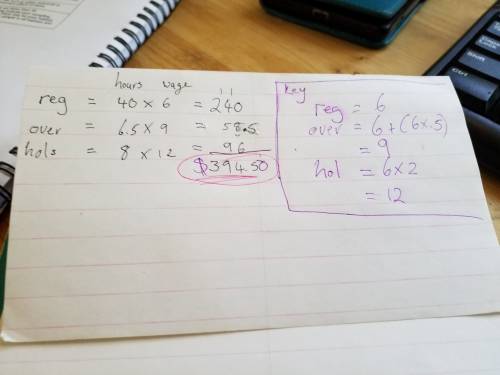 hours wage
reg = 40 x 6 = 240
over = 6.5 x 9 = 58.5
hols = 8 x 12 = 96
$394.50
key
reg = 6
over = 6 + (6x.5)
= 9
hol = 6x2
= 12